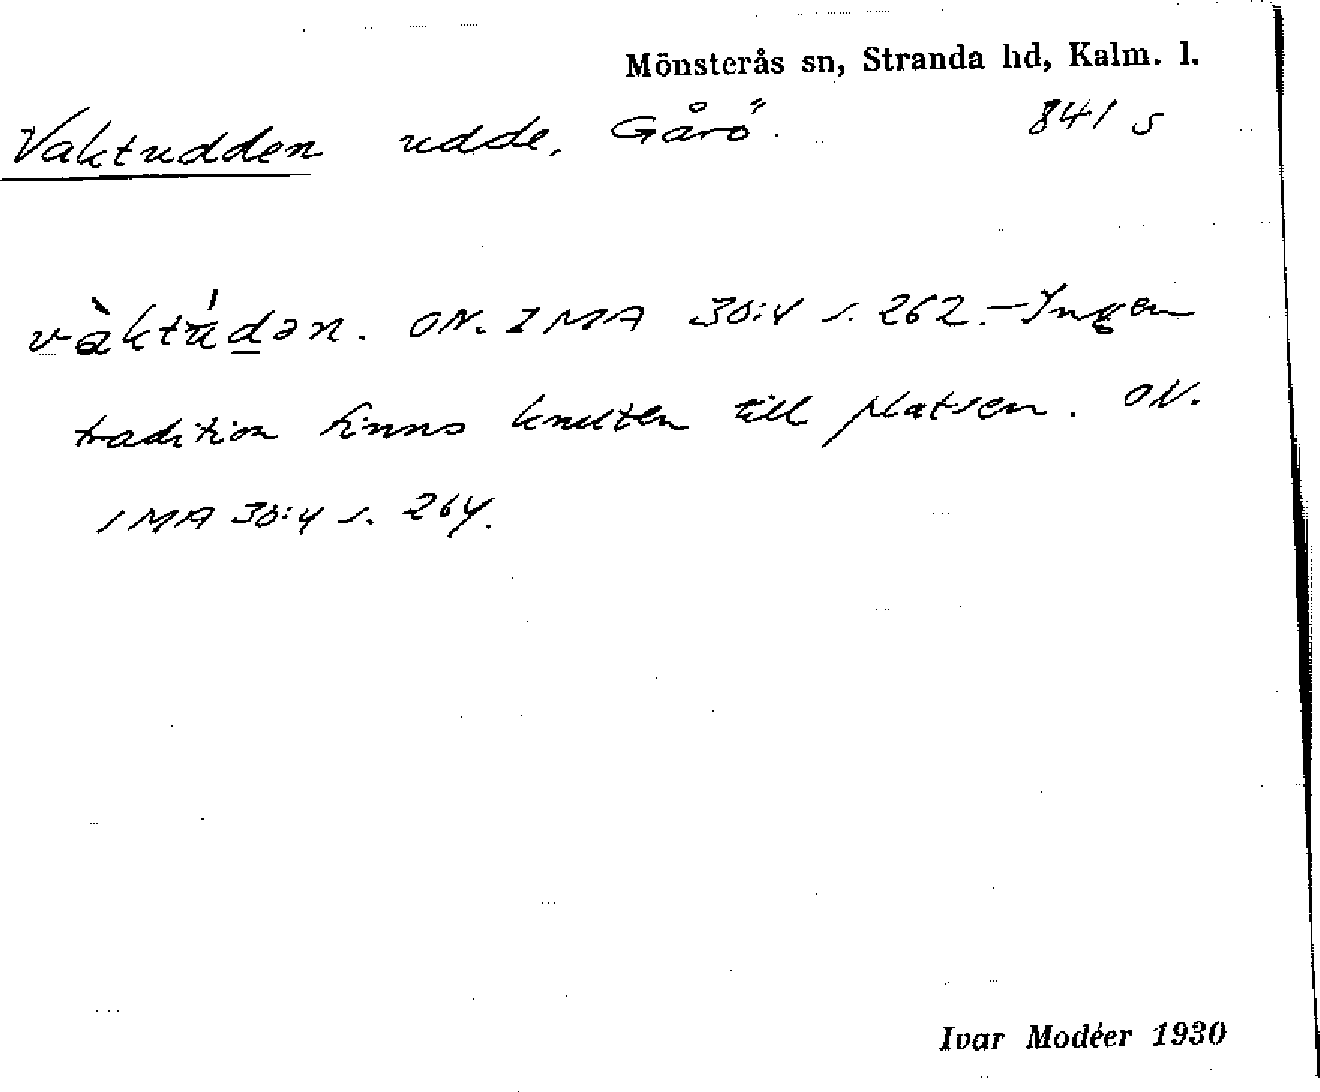 Mönsterås sn, Stranda hd, Kalm. l.
Vaktudden udde, Gårö. 841 s
vàktúdən. ON. IMA 30:4 s. 262. – Ingen
tradition finns knuten till platsen. ON.
IMA 30:4 s. 264.
Ivar Modéer 1930